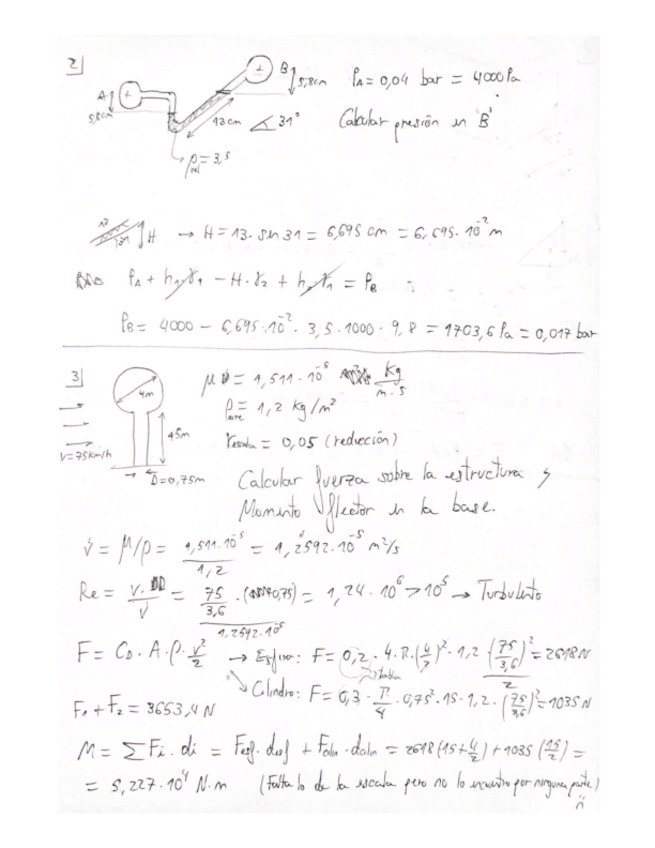 2
A
5,8cm
B
5,8cm
13 cm
31°
ρ rel = 3,5
P_A = 0,04 bar = 4000 Pa
Calcular presión en B
13
31
H → H = 13 · sen 31 = 6,695 cm = 6,695 · 10^-2 m
P_A + h_1 γ_1 - H · γ_2 + h_2 γ_1 = P_B
P_B = 4000 - 6,695 · 10^-2 · 3,5 · 1000 · 9,8 = 1703,6 Pa = 0,017 bar
3
4m
45m
V = 75 km/h
D = 0,75m
μ = 1,511 · 10^-5 Kg/m·s
ρ aire = 1,2 kg/m²
r escala = 0,05 (reducción)
Calcular fuerza sobre la estructura y
Momento flector en la base.
ν = μ/ρ = 1,511 · 10^-5 / 1,2 = 1,2592 · 10^-5 m²/s
Re = V · D / ν = 75/3,6 · (0,75) / 1,2592 · 10^-5 = 1,24 · 10^6 > 10^5 → Turbulento
F = C_D · A · ρ · v²/2 → Esfera: F = 0,2 · 4 · π · (4/2)² · 1,2 · (75/3,6)² / 2 = 2618 N
tabla
Cilindro: F = 0,3 · π/4 · 0,75² · 15 · 1,2 · (75/3,6)² = 1035 N
F_1 + F_2 = 3653,4 N
M = Σ Fi · di = Fesf · desf + Fcilin · dcilin = 2618 (15 + 4/2) + 1035 (15/2) =
= 5,227 · 10^4 N·m (Falta lo de la escala pero no lo encuentro por ninguna parte)